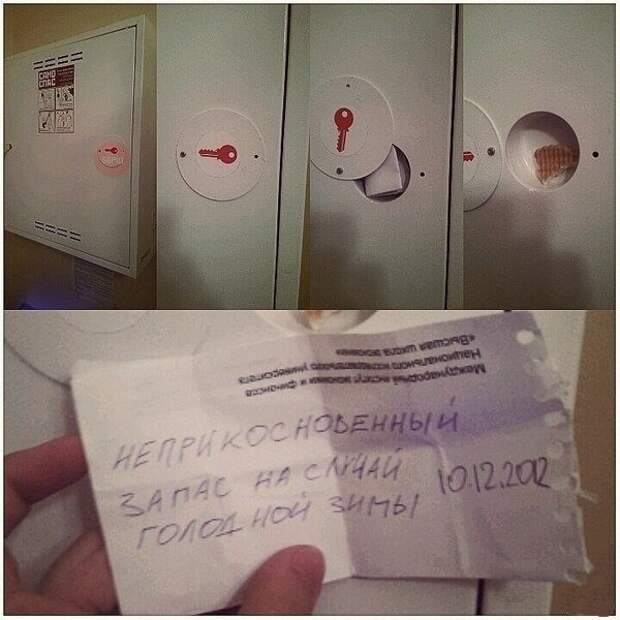 САМО
СПАС
Международный институт экономики и финансов
Национального исследовательского университета
«Высшая школа экономики»
НЕПРИКОСНОВЕННЫЙ
ЗАПАС НА СЛУЧАЙ
ГОЛОДНОЙ ЗИМЫ
10.12.2012